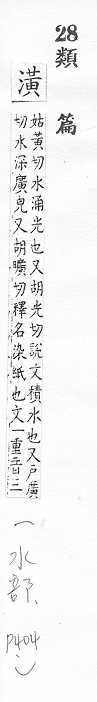 28類篇
潢
姑黃切水涌光也又胡光切說文積水也又戶廣
切水深廣皃又胡曠切釋名染紙也文一重音三
(水部、P404)